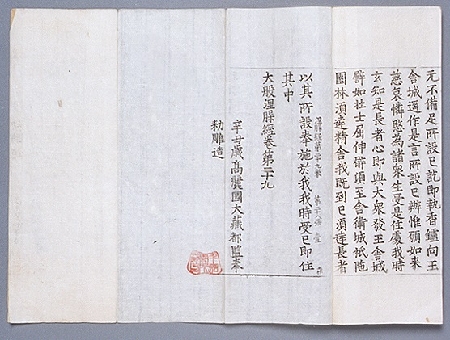 无不備足所設已訖即執香鑪向王
舍城遥作是言所設已辦惟願如来
慈哀憐愍為諸衆生受是住處我時
玄知是長者心即與大衆發王舍城
譬如壯士屈伸臂頃至舍衛城祇陁
園林須達精舍我既到已須達長者
以其所設奉施於我我時受已即住
其中
大般涅槃經卷第二十九
辛丑歲高麗國大藏都監奉
勑雕造